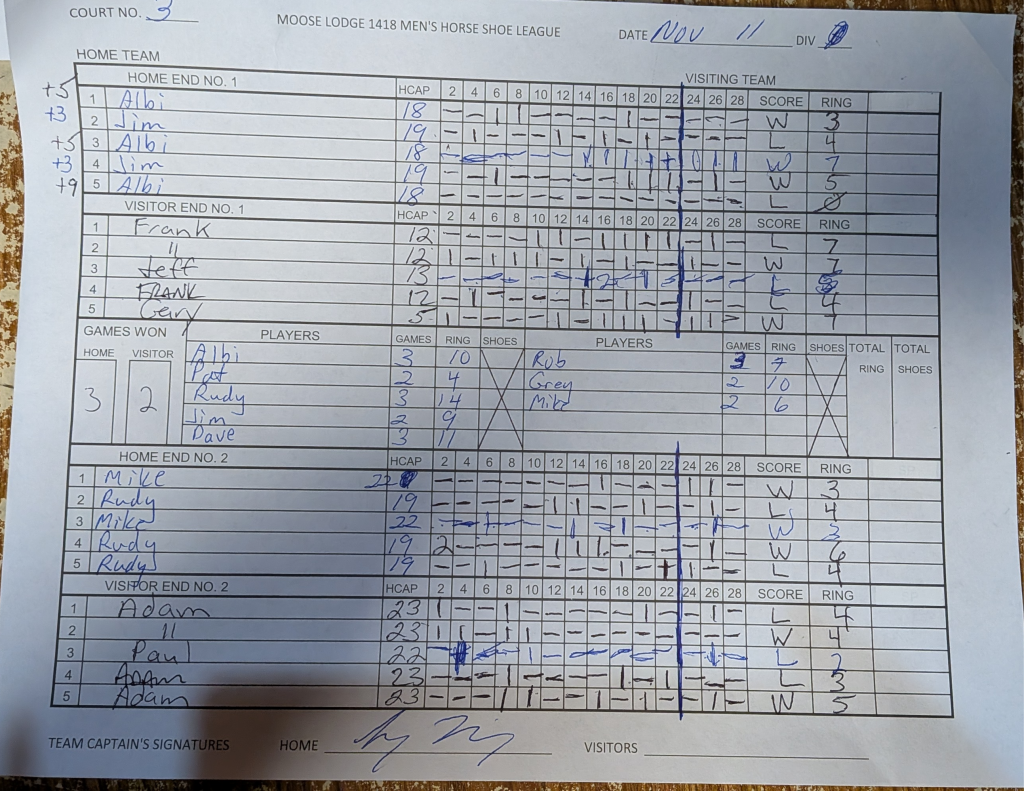 COURT NO. 3 MOOSE LODGE 1418 MEN'S HORSE SHOE LEAGUE DATE Nov 11 DIV
HOME TEAM VISITING TEAM
HOME END NO. 1 HCAP 2 4 6 8 10 12 14 16 18 20 22 24 26 28 SCORE RING
+5 1 Albi 18 - - | | - - - - | - - - - - W 3
+3 2 Jim 19 L 4
+5 3 Albi 18 W 7
+3 4 Jim 19 W 5
+9 5 Albi 18 - - - - - - - - - - - - - - L 0
VISITOR END NO. 1 HCAP 2 4 6 8 10 12 14 16 18 20 22 24 26 28 SCORE RING
1 Frank 12 L 7
2 " 12 W 7
3 Jeff 13 L
4 FRANK 12 L 4
5 Gary 5 W 7
GAMES WON PLAYERS GAMES RING SHOES PLAYERS GAMES RING SHOES TOTAL RING TOTAL SHOES
HOME VISITOR
3 2
Albi 3 10 Rob 3 7
Pat 2 4 Greg 2 10
Rudy 3 14 Mike 2 6
Jim 2 9
Dave 3 11
HOME END NO. 2 HCAP 2 4 6 8 10 12 14 16 18 20 22 24 26 28 SCORE RING
1 Mike 22 W 3
2 Rudy 19 L 4
3 Mike 22 W 3
4 Rudy 19 W 6
5 Rudy 19 L 4
VISITOR END NO. 2 HCAP 2 4 6 8 10 12 14 16 18 20 22 24 26 28 SCORE RING
1 Adam 23 L 4
2 " 23 W 4
3 Paul 22 L 2
4 Adam 23 L 3
5 Adam 23 W 5
TEAM CAPTAIN'S SIGNATURES HOME VISITORS